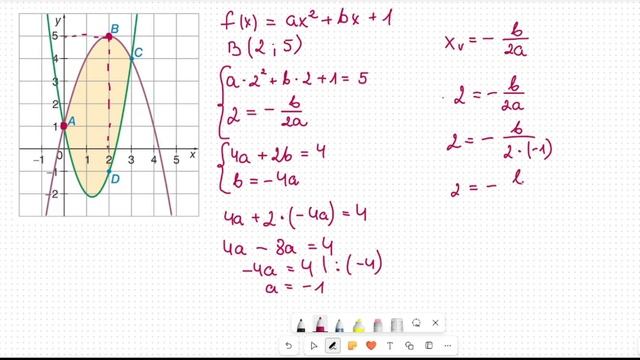 y
5
4
3
2
1
-1
-2
-1
0
1
2
3
4
5
x
A
B
C
D
f(x) = ax² + bx + 1
B (2 ; 5)
{ a · 2² + b · 2 + 1 = 5
2 = - b/2a
{ 4a + 2b = 4
b = -4a
4a + 2 · (-4a) = 4
4a - 8a = 4
-4a = 4 | : (-4)
a = -1
xᵥ = - b/2a
2 = - b/2a
2 = - b/2·(-1)
2 = -